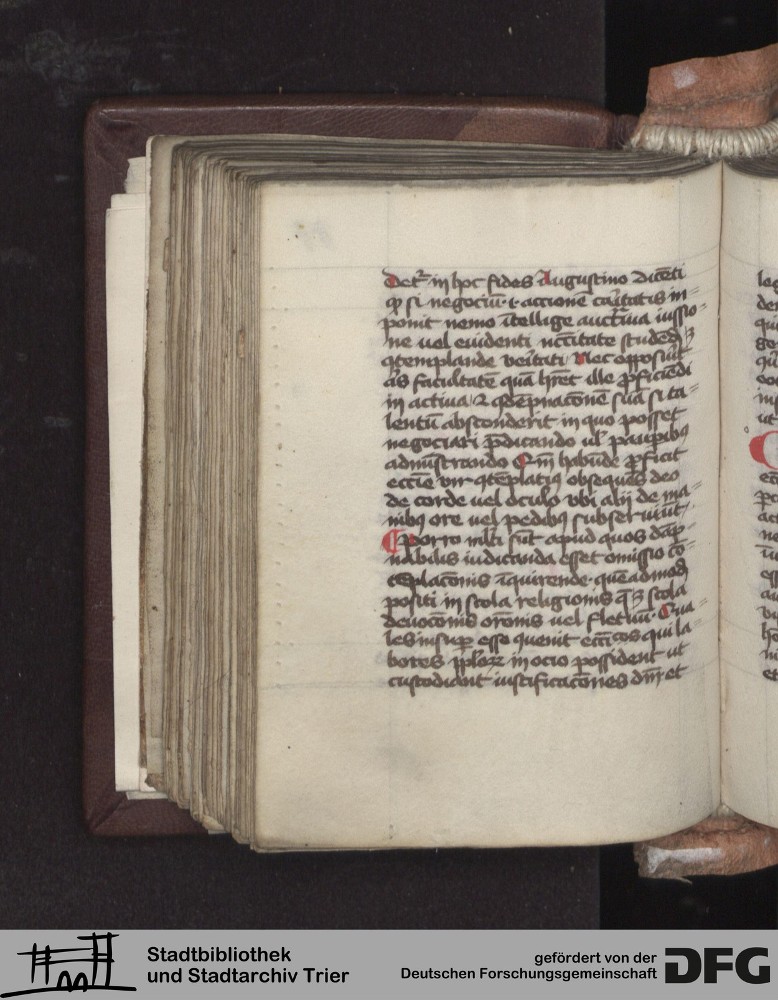 Det̄ in hoc fides Augustino dicēti
ꝙ si negociū ⁊ accionē caritatis in-
ponit nemo ītellige auctīua iussio-
ne uel euidenti nc̄citate
ꝯtemplande veritati Nec opposuit
facultatē quā hr̄et ille ꝓficiēdi
in actiua sua si ta-
lentū absconderit in quo posset
negociari p̄dicando ul' paupibꝫ
administrando habūde ꝓficit
eccīe vir ꝯtēplatiꝰ obsequēs deo
de corde uel oculo vbi alij de ma-
nibꝫ ore uel pedibꝫ subseruiūt
Porro ml̄ti sūt apud quos dāp-
nabilis iudicanda esset omissio cō-
tēplacōnis īquirende quēadmodū
positi in scola religionis scola
deuocōnis orōnis uel fletuū Qua-
les insup esse quenit qui la-
bores ppl̄oꝝ in ocio possident ut
custodiant iustificacōnes dn̄i et
Stadtbibliothek
und Stadtarchiv Trier
gefördert von der
Deutschen Forschungsgemeinschaft
DFG